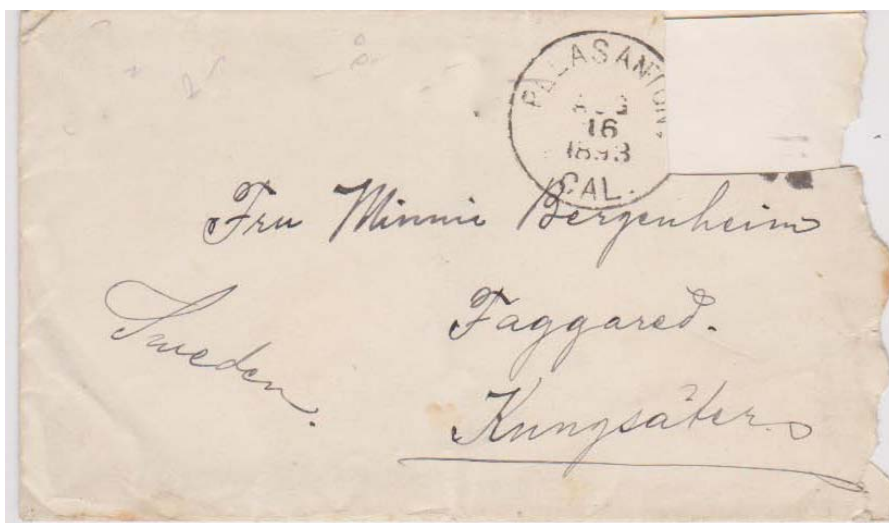 PLEASANTON,
AUG
16
1893
CAL.
Fru Minnie Bergenheim
Faggared.
Sweden.
Kungsäter